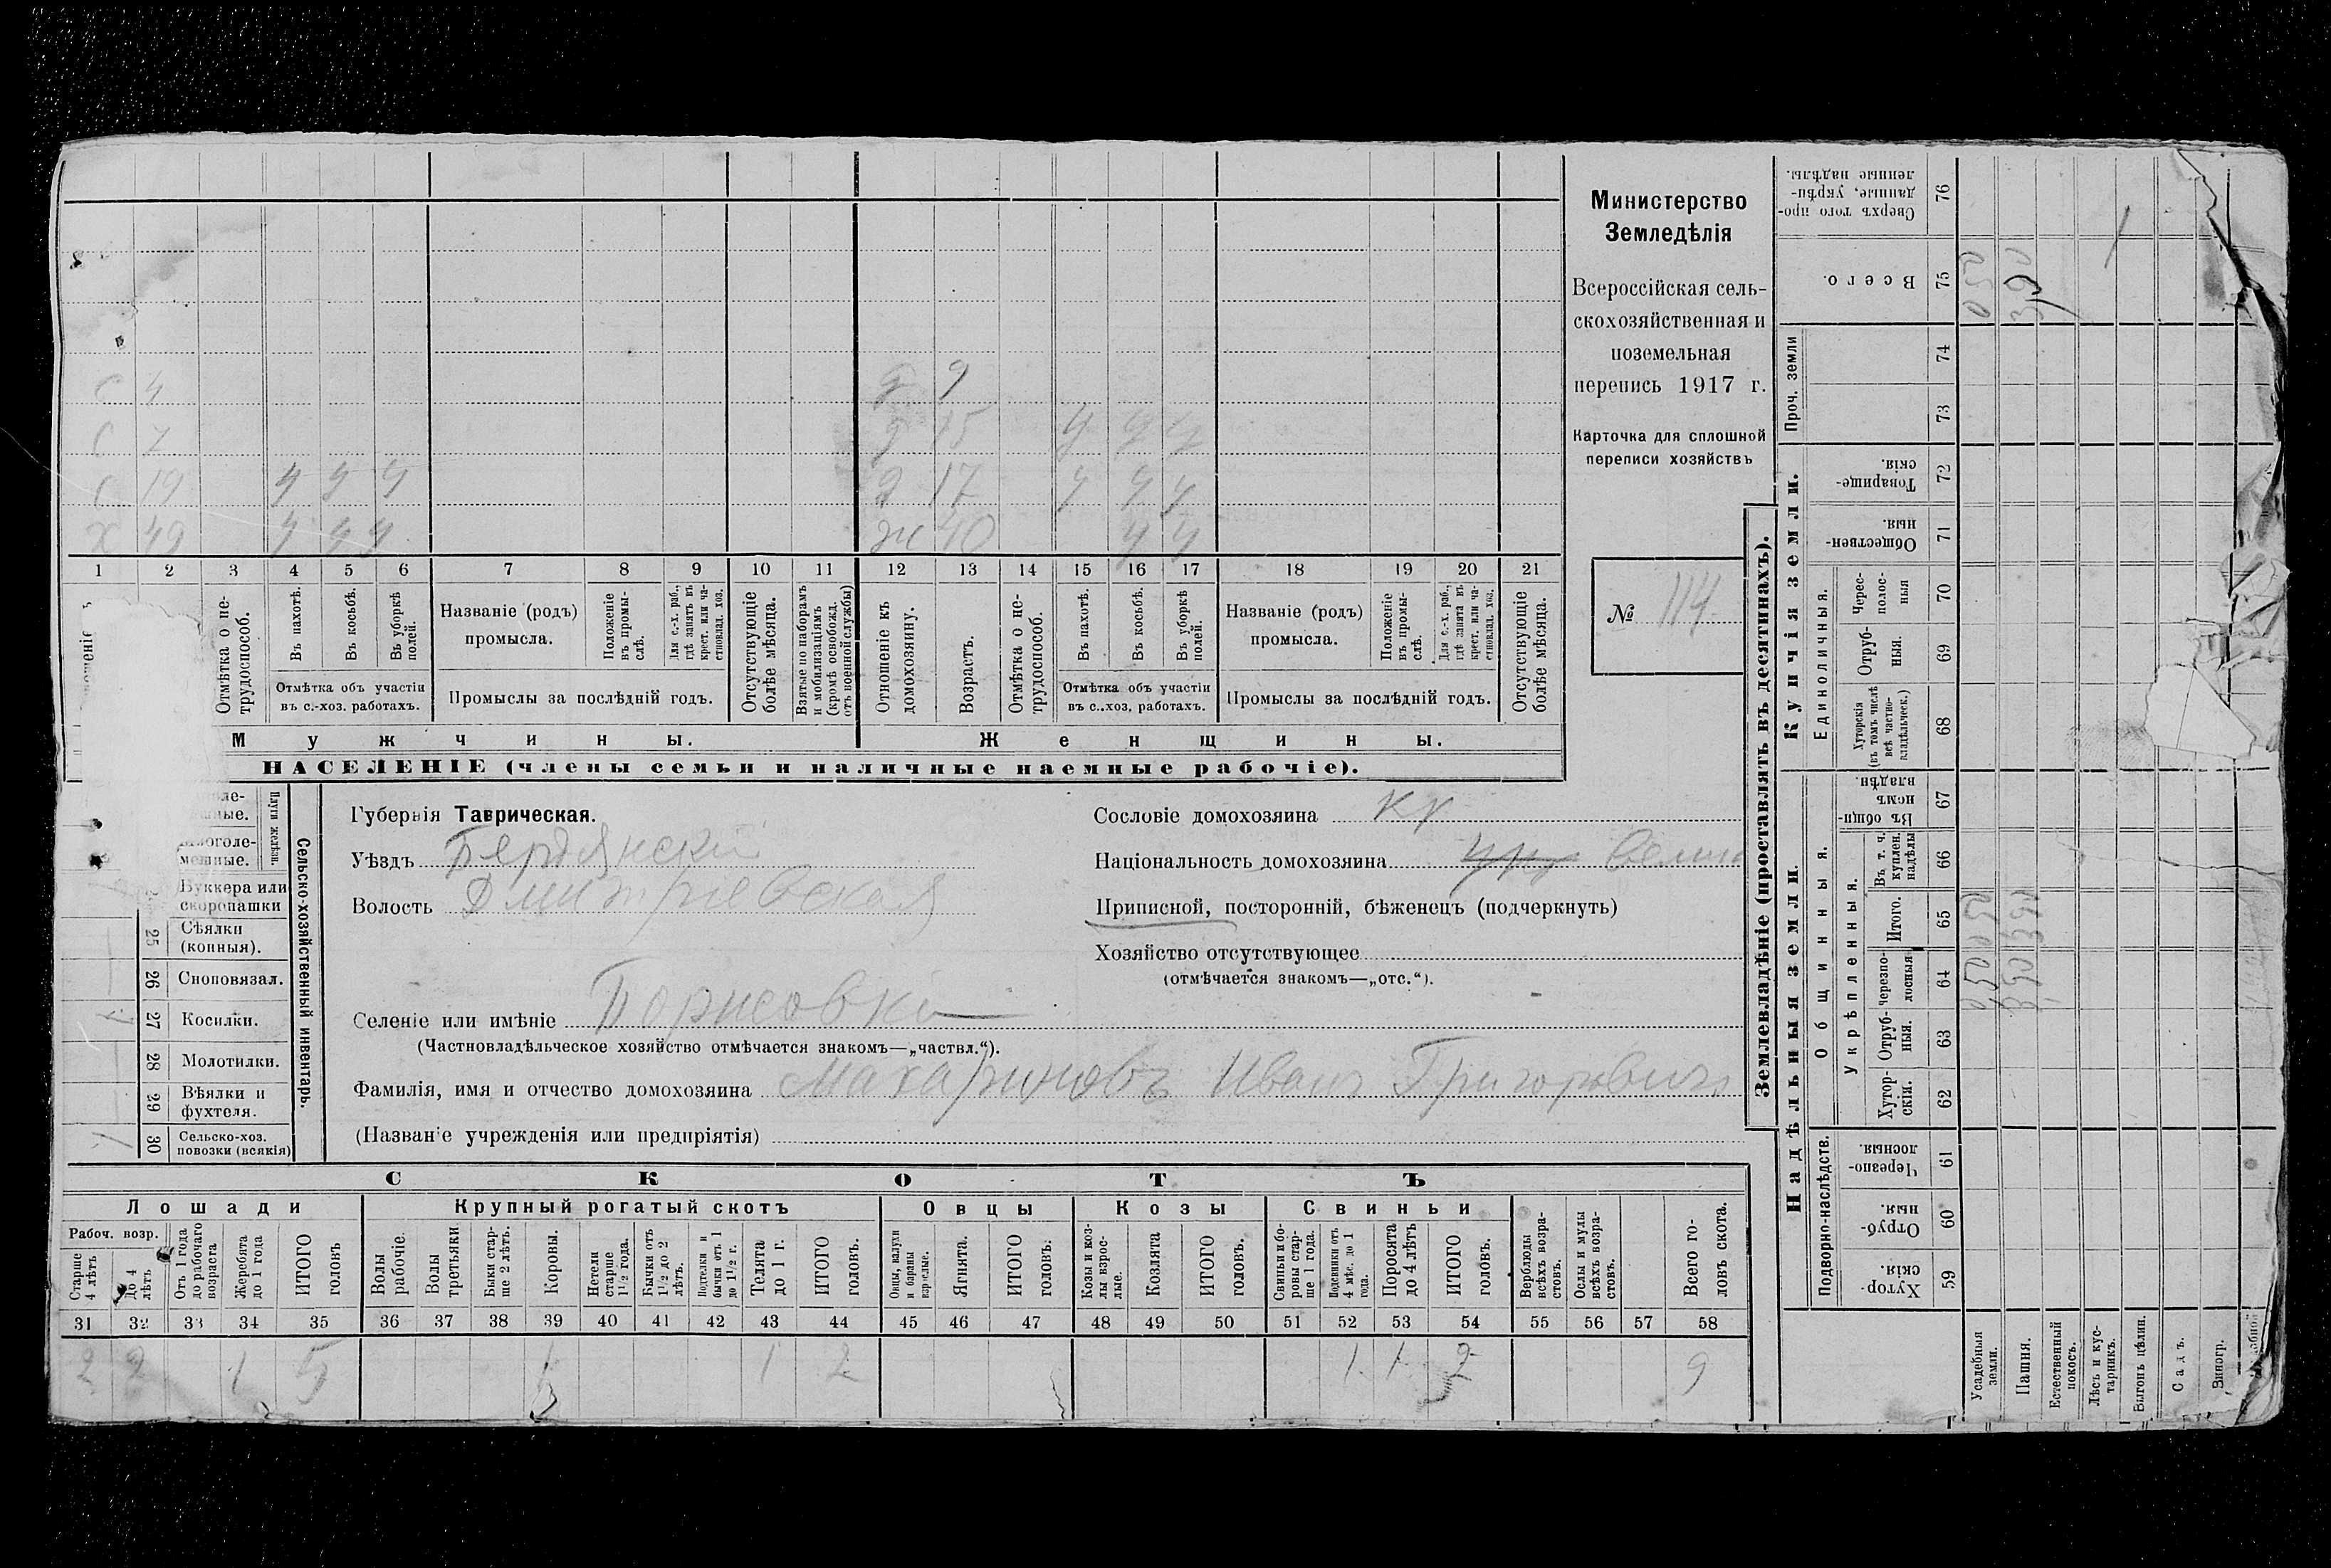 Министерство
Земледѣлія
Всероссійская сель-
скохозяйственная и
поземельная
перепись 1917 г.
Карточка для сплошной
переписи хозяйствъ
№ 114
С 4
С 7
С 19 У У У
Х 49 У У У
Д 9
Д 15 У У У
Д 17 У У У
Ж 40 У У
1 2 3 4 5 6 7 8 9 10 11 12 13 14 15 16 17 18 19 20 21
Отмѣтка о не-
трудоспособ.
Въ пахотѣ.
Въ косьбѣ.
Въ уборкѣ
полей.
Отмѣтка объ участіи
въ с.-хоз. работахъ.
Названіе (родъ)
промысла.
Положеніе
въ промы-
слѣ.
Для с.-х. раб.,
гдѣ занятъ въ
крест. или ча-
стновлад. хоз.
Промыслы за послѣдній годъ.
Отсутствующіе
болѣе мѣсяца.
Взятые по наборамъ
и мобилизаціямъ
(кромѣ освобожд.
отъ военной службы)
Отношеніе къ
домохозяину.
Возрастъ.
Отмѣтка о не-
трудоспособ.
Въ пахотѣ.
Въ косьбѣ.
Въ уборкѣ
полей.
Отмѣтка объ участіи
въ с.-хоз, работахъ.
Названіе (родъ)
промысла.
Положеніе
въ промы-
слѣ.
Для с.-х. раб.,
гдѣ занята въ
крест. или ча-
стновлад. хоз.
Промыслы за послѣдній годъ.
Отсутствующіе
болѣе мѣсяца.
Мужчины.
Женщины.
НАСЕЛЕНІЕ (члены семьи и наличные наемные рабочіе).
Губернія Таврическая.
Уѣздъ Бердянскій
Волость Дмитріевская
Селеніе или имѣніе Борисовка
(Частновладѣльческое хозяйство отмѣчается знакомъ—„частвл.“).
Фамилія, имя и отчество домохозяина Махариновъ Иванъ Григорьевичъ
(Названіе учрежденія или предпріятія)
Сословіе домохозяина кр
Національность домохозяина
Приписной, посторонній, бѣженецъ (подчеркнуть)
Хозяйство отсутствующее
(отмѣчается знакомъ—„отс.“).
Сельско-хозяйственный инвентарь.
Плуги желѣзн.
Буккера или
скоропашки
25 Сѣялки
(конныя).
26 Сноповязал.
27 Косилки. 1
28 Молотилки.
29 Вѣялки и
фухтеля.
30 Сельско-хоз.
повозки (всякія) 1
СКОТЪ
Лошади
Рабоч. возр.
Старше
4 лѣтъ
До 4
лѣтъ
Отъ 1 года
до рабочаго
возраста
Жеребята
до 1 года
ИТОГО
головъ
Крупный рогатый скотъ
Волы
рабочіе.
Волы
третьяки
Быки стар-
ше 2 лѣтъ.
Коровы.
Нетели
старше
1½ года.
Бычки отъ
1½ до 2
лѣтъ.
Подтелки и
бычки отъ 1
до 1½ г.
Телята
до 1 г.
ИТОГО
головъ.
Овцы
Овцы, валухи
и бараны
взрослые.
Ягнята.
ИТОГО
головъ.
Козы
Козы и коз-
лы взрос-
лые.
Козлята
ИТОГО
головъ.
Свиньи
Свиньи и бо-
ровы стар-
ше 1 года.
Подсвинки отъ
4 мѣс. до 1
года.
Поросята
до 4 лѣтъ
ИТОГО
головъ.
Верблюды
всѣхъ возра-
стовъ.
Ослы и мулы
всѣхъ возра-
стовъ.
Всего го-
ловъ скота.
31 32 33 34 35 36 37 38 39 40 41 42 43 44 45 46 47 48 49 50 51 52 53 54 55 56 57 58
2 2 1 5 1 1 2 1 1 2 9
Землевладѣніе (проставлять въ десятинахъ).
Купчія земли.
Надѣльныя земли.
Сверхъ того про-
данные, укрѣп-
ленные надѣлы. 76
Всего. 75
Проч. земли 74
73
Товарище-
скія. 72
Обществен-
ныя. 71
Единоличныя.
Черес-
полос-
ныя 70
Отруб-
ныя. 69
Хуторскія
(въ томъ числѣ
всѣ частно-
владѣльческ.) 68
Общинныя.
Въ общин-
номъ
владѣн. 67
Укрѣпленныя.
Въ т. ч.
куплен.
надѣлы 66
Итого. 65
Черезпо-
лосныя 64
Отруб-
ныя. 63
Хутор-
скія. 62
Подворно-наслѣдств.
Черезпо-
лосныя 61
Отруб-
ныя. 60
Хутор-
скія. 59
Усадебныя
земли.
Пашня.
Естественный
покосъ.
Лѣсъ и кус-
тарникъ.
Выгонъ цѣлин.
Садъ.
Виногр.